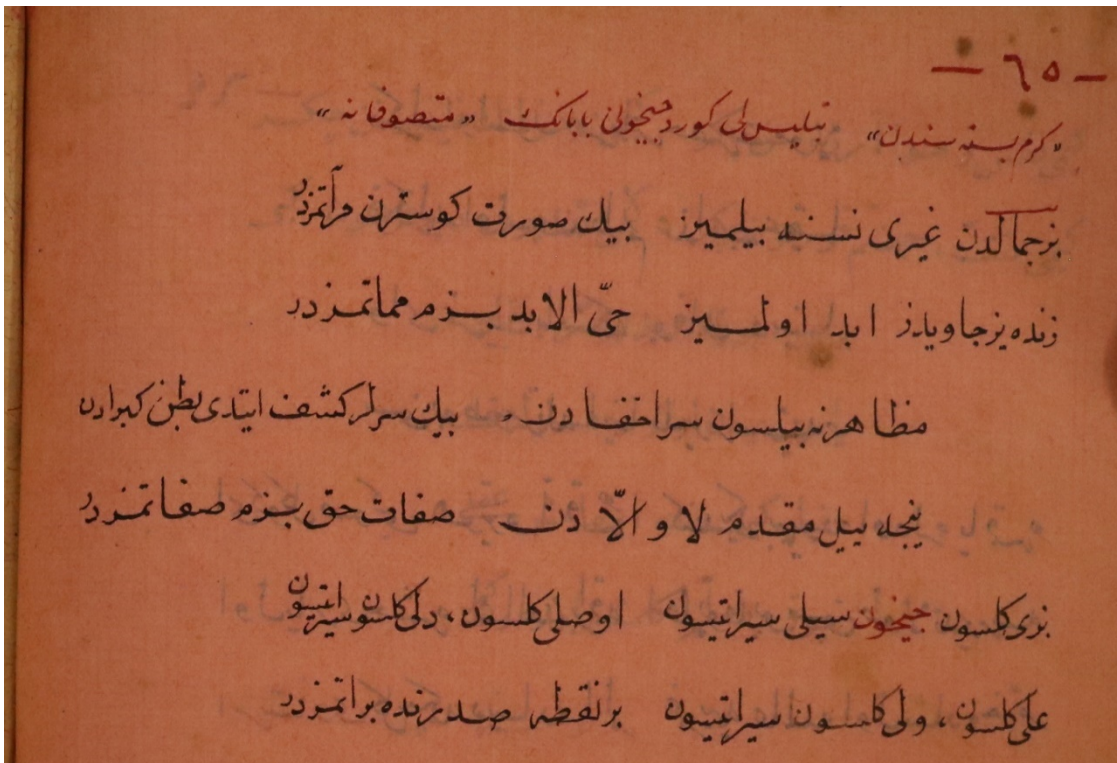 — ٦٥ —
«كرم بسته سندن» بتليس لى كورد جيخونى بابانك «متصوفانه»
بز جمالدن غيرى نسنه بيلميز بيك صورت كوسترن مرآتمزدر
زنده يز جاويدز ابد اولميز حىّ الابد بزم مماتمزدر
مظاهر نه بيلسون سر اخفادن بيك سرلر كشف ايتدى بطن كبرادن
نيجه ييل مقدم لا و الاّ دن صفات حق بزم صفاتمزدر
بزى كلسون جيخون سيلى سير ايتسون اوصلى كلسون، دلى كلسون سير ايتسون
على كلسون، ولى كلسون سير ايتسون بر نقطه صدرنده براتمزدر